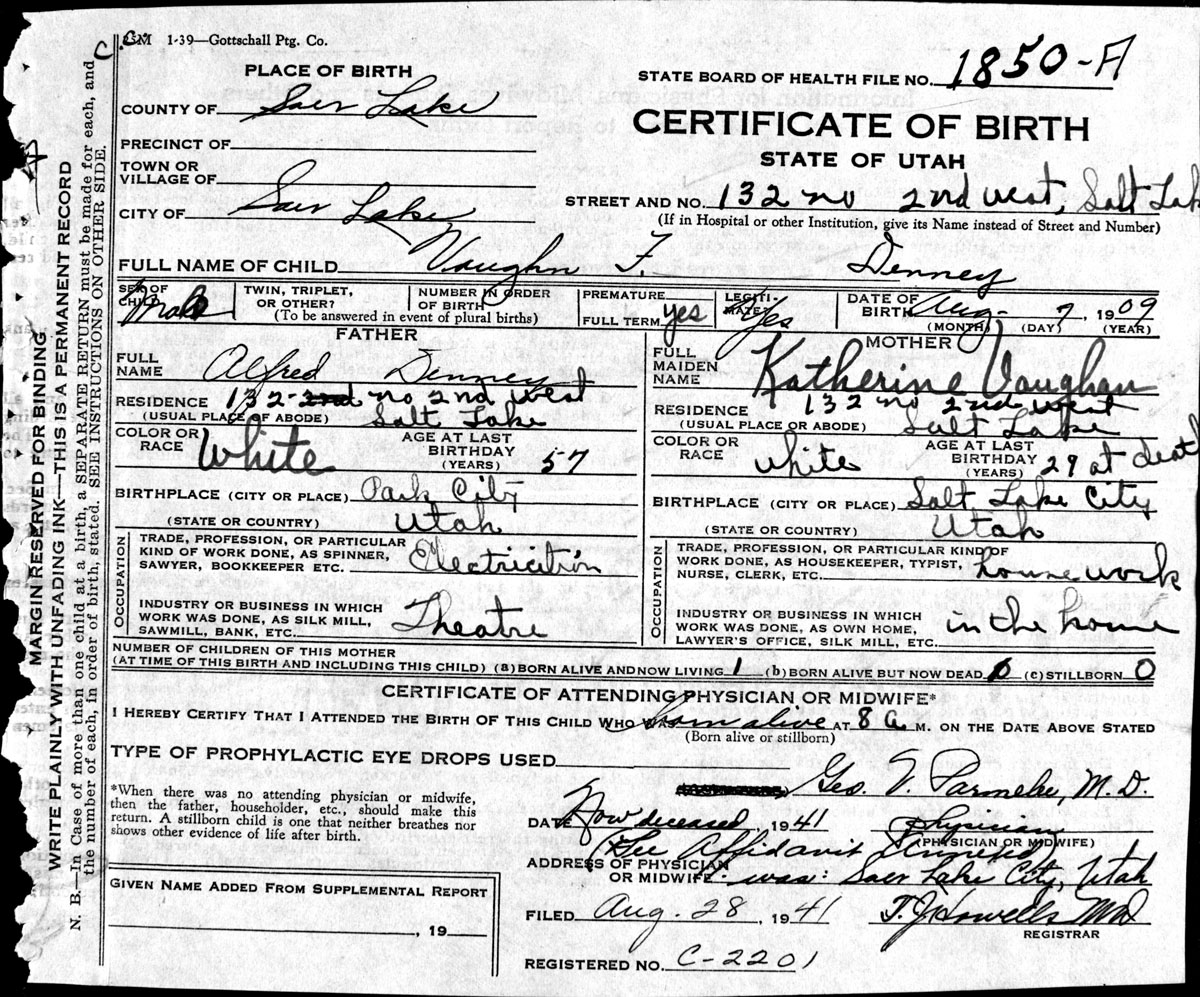 C.C.M 1-39—Gottschall Ptg. Co.
PLACE OF BIRTH
STATE BOARD OF HEALTH FILE NO. 1850-A
COUNTY OF Salt Lake
CERTIFICATE OF BIRTH
PRECINCT OF
STATE OF UTAH
TOWN OR VILLAGE OF
CITY OF Salt Lake
STREET AND NO. 132 no 2nd West, Salt Lake
(If in Hospital or other Institution, give its Name instead of Street and Number)
FULL NAME OF CHILD Vaughn F. Denney
SEX OF CHILD Male
TWIN, TRIPLET, OR OTHER?
NUMBER IN ORDER OF BIRTH
(To be answered in event of plural births)
PREMATURE
FULL TERM yes
LEGITIMATE? Yes
DATE OF BIRTH Aug. 7, 1909
(MONTH) (DAY) (YEAR)
FATHER
FULL NAME Alfred Denney
RESIDENCE 132- 2nd no 2nd West
(USUAL PLACE OF ABODE) Salt Lake
COLOR OR RACE White
AGE AT LAST BIRTHDAY (YEARS) 57
BIRTHPLACE (CITY OR PLACE) Park City
(STATE OR COUNTRY) Utah
OCCUPATION
TRADE, PROFESSION, OR PARTICULAR
KIND OF WORK DONE, AS SPINNER,
SAWYER, BOOKKEEPER ETC. Electrician
INDUSTRY OR BUSINESS IN WHICH
WORK WAS DONE, AS SILK MILL,
SAWMILL, BANK, ETC. Theatre
MOTHER
FULL MAIDEN NAME Katherine Vaughan
RESIDENCE 132 no 2nd West
(USUAL PLACE OR ABODE) Salt Lake
COLOR OR RACE white
AGE AT LAST BIRTHDAY (YEARS) 29 at death
BIRTHPLACE (CITY OR PLACE) Salt Lake City
(STATE OR COUNTRY) Utah
OCCUPATION
TRADE, PROFESSION, OR PARTICULAR KIND OF
WORK DONE, AS HOUSEKEEPER, TYPIST,
NURSE, CLERK, ETC. house work
INDUSTRY OR BUSINESS IN WHICH
WORK WAS DONE, AS OWN HOME,
LAWYER'S OFFICE, SILK MILL, ETC. in the home
NUMBER OF CHILDREN OF THIS MOTHER
(AT TIME OF THIS BIRTH AND INCLUDING THIS CHILD) (a) BORN ALIVE AND NOW LIVING 1 (b) BORN ALIVE BUT NOW DEAD 0 (c) STILLBORN 0
CERTIFICATE OF ATTENDING PHYSICIAN OR MIDWIFE*
I HEREBY CERTIFY THAT I ATTENDED THE BIRTH OF THIS CHILD WHO WAS born alive AT 8 a M. ON THE DATE ABOVE STATED
(Born alive or stillborn)
TYPE OF PROPHYLACTIC EYE DROPS USED
Geo. V. Parmelee, M.D.
*When there was no attending physician or midwife,
then the father, householder, etc., should make this
return. A stillborn child is one that neither breathes nor
shows other evidence of life after birth.
DATE Now deceased, 1941 physician
(PHYSICIAN OR MIDWIFE)
(See Affidavit Annexed)
ADDRESS OF PHYSICIAN
OR MIDWIFE was: Salt Lake City, Utah
GIVEN NAME ADDED FROM SUPPLEMENTAL REPORT
, 19
FILED Aug. 28, 1941 T. J. Howells MD
REGISTRAR
REGISTERED NO. C-2201
MARGIN RESERVED FOR BINDING
WRITE PLAINLY WITH UNFADING INK—THIS IS A PERMANENT RECORD
N. B.—In Case of more than one child at a birth, a SEPARATE RETURN must be made for each, and
the number of each, in order of birth, stated. SEE INSTRUCTIONS ON OTHER SIDE.